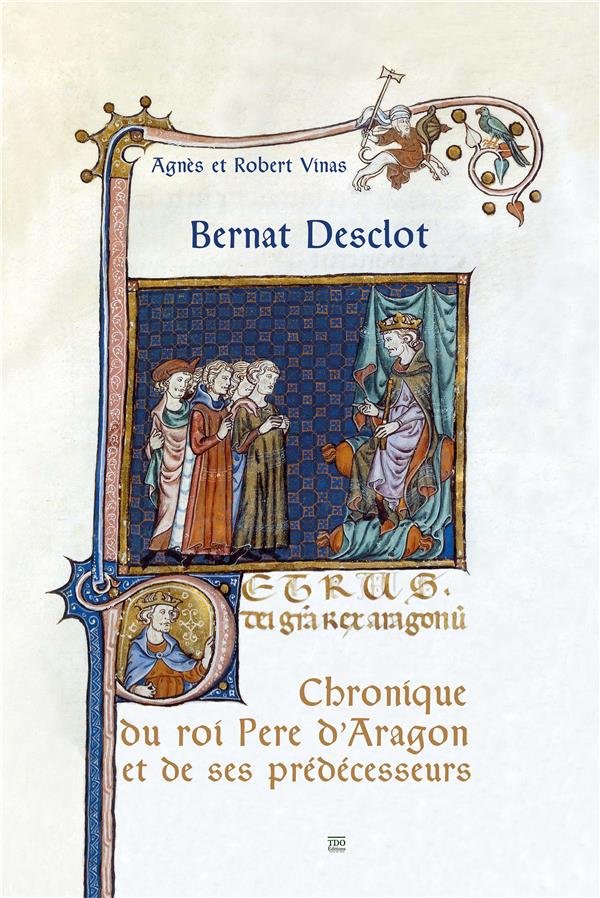 Agnès et Robert Vinas
Bernat Desclot
PETRUS.
dei gr̄a Rex aragonū
Chronique
du roi Pere d'Aragon
et de ses prédécesseurs
TDO
Éditions